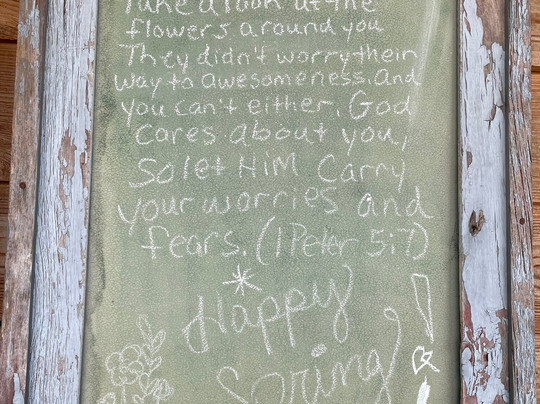 Take a look at the
flowers around you
They didn't worry their
way to awesomeness. And
you can't either. God
cares about you,
So let HIM Carry
your worries and
fears. (1 Peter 5:7)
Happy
Spring!